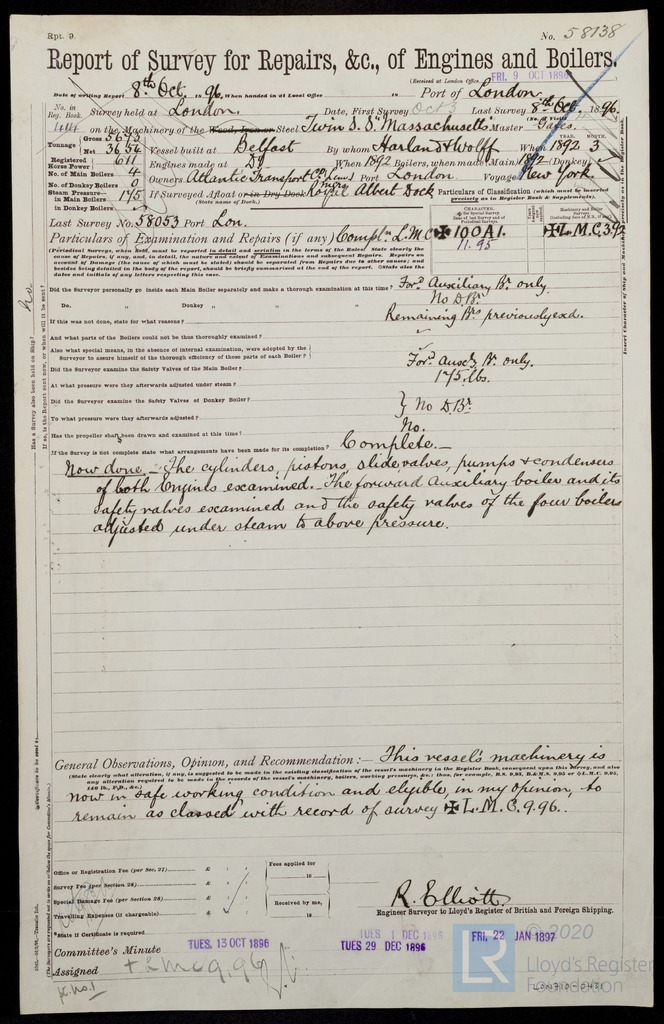 Rpt. 9.
No. 58138
Report of Survey for Repairs, &c., of Engines and Boilers.
(Received at London Office
FRI. 9 OCT 1896
Date of writing Report 8th Oct. 1896. When handed in at Local Office 18 Port of London.
No. in Reg. Book. Survey held at London. Date, First Survey Oct 3 Last Survey 8th Oct. 1896.
on the Machinery of the Wood, Iron or Steel Twin S.S. "Massachusetts" Master
Tonnage Gross
Net 3654 Vessel built at Belfast By whom Harland & Wolff When 1892 3
Registered Horse Power 611 Engines made at Do When 1892 Boilers, when made Main 1892 (Donkey)
No. of Main Boilers 4 Owners Atlantic Transport Co Port London. Voyage New York.
No. of Donkey Boilers 0
Steam Pressure in Main Boilers 175 If Surveyed Afloat or in Dry Dock Royal Albert Dock
in Donkey Boilers (State name of Dock.)
Particulars of Classification (which must be inserted precisely as in Register Book & Supplements).
Last Survey No. 58053 Port Lon.
Particulars of Examination and Repairs (if any) Compln L.M.C. ✠ 100A1. ✠ L.M.C. 3,92
11.95
(Periodical Surveys, when held, must be reported in detail and seriatim in the terms of the Rules. State clearly the cause of Repairs, if any, and, in detail, the nature and extent of Examinations and subsequent Repairs. Repairs on account of Damage (the cause of which must be stated) should be separated from Repairs due to other causes; and besides being detailed in the body of the report, should be briefly summarised at the end of the report. (State also the dates and initials of any letters respecting this case.
Did the Surveyor personally go inside each Main Boiler separately and make a thorough examination at this time? Ford Auxiliary Br. only.
Do. " Donkey " " No D.Br
If this was not done, state for what reasons? Remaining Brs previously exd.
And what parts of the Boilers could not be thus thoroughly examined?
Also what special means, in the absence of internal examination, were adopted by the Surveyor to assure himself of the thorough efficiency of those parts of each Boiler?
Did the Surveyor examine the Safety Valves of the Main Boiler? Ford Auxy Br. only.
At what pressure were they afterwards adjusted under steam? 175 lbs.
Did the Surveyor examine the Safety Valves of Donkey Boiler?
To what pressure were they afterwards adjusted? } No D.Br.
Has the propeller shaft been drawn and examined at this time? No.
If the Survey is not complete state what arrangements have been made for its completion? Complete.—
Now done.— The cylinders, pistons, slide valves, pumps & condensers
of both Engines examined.— The forward Auxiliary boiler and its
safety valves examined and the safety valves of the four boilers
adjusted under steam to above pressure.
General Observations, Opinion, and Recommendation:— This vessel's machinery is
(State clearly what alteration, if any, is suggested to be made in the existing classification of the vessel's machinery in the Register Book, consequent upon this Survey, and also any alteration required to be made in the records of the vessel's machinery, boilers, working pressures, &c.: thus, for example, B.S. 9.95, B.&M.S. 9.95 or ✠L.M.C. 9.95, 140 lb., F.D., &c.)
now in safe working condition and eligible, in my opinion, to
remain as classed with record of survey ✠ L.M.C. 9.96.
Office or Registration Fee (per Sec. 27) £ Fees applied for
Survey Fee (per Section 28) £ 18
Special Damage Fee (per Section 28) £ Received by me,
Travelling Expenses (if chargeable) £ 18
R. Elliott
Engineer Surveyor to Lloyd's Register of British and Foreign Shipping.
*State if Certificate is required
TUES. 1 DEC 1896
FRI. 22 JAN 1897
Committee's Minute TUES. 13 OCT 1896 TUES 29 DEC 1896
Assigned + Lmc 9,96
© 2020
LR Lloyd's Register Foundation
LON710-0431
Has a Survey also been held on Ship? No.
If so, is the Report sent now, or when will it be sent?